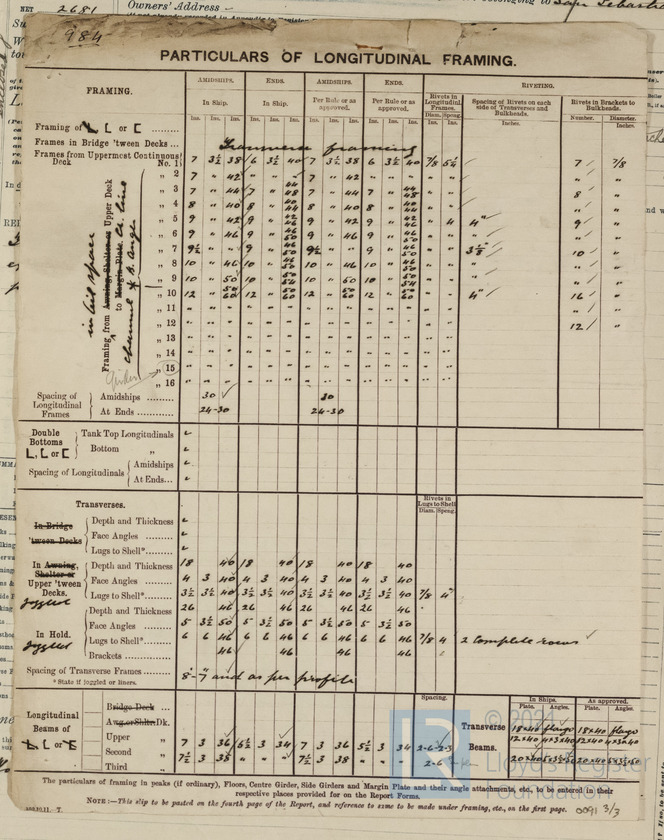 NET 2681
Owners' Address
984
PARTICULARS OF LONGITUDINAL FRAMING.
FRAMING. AMIDSHIPS. ENDS. AMIDSHIPS. ENDS. RIVETING.
In Ship. In Ship. Per Rule or as approved. Per Rule or as approved. Rivets in Longitudinal Frames. Spacing of Rivets on each side of Transverses and Bulkheads. Rivets in Brackets to Bulkheads.
Ins. Ins. Ins. Ins. Ins. Ins. Ins. Ins. Ins. Ins. Ins. Ins. Diam. Spcng. Ins. Ins. Inches. Number. Diameter. Inches.
Framing of L, [ or [
Frames in Bridge 'tween Decks ... Transverse framing
Frames from Uppermost Continuous Deck No. 1 7 3½ 38 6 3½ 40 7 3½ 38 6 3½ 40 7/8 5¼ 7 7/8
" 2 7 " 42 " " " 7 " 42
" 3 7 " 44 7 " 48 44 7 " 44 7 " 44 48 8 "
" 4 8 " 40 8 " 40 44 8 " 40 8 " 40 44
" 5 9 " 42 9 " 42 46 9 " 42 9 " 42 46 " 4 4" 9 "
" 6 9 " 46 9 " 46 50 9 " 46 9 " 46 50
" 7 9½ " " 9 " 46 50 9½ " " 9 " 46 50 3½" 10 "
" 8 10 " 46 10 " 46 50 10 " 46 10 " 46 50
" 9 10 " 50 10 " 50 54 10 " 50 10 " 50 54
" 10 12 " 54 60 12 " 50 60 12 " 50 60 12 " 50 60 4" 16 "
" 11
" 12 12 "
" 13
" 14
" 15
" 16
Framing from Awning, Shelter or Upper Deck to Margin Plate
in oil space
Ce. line
channel & B. angle
Girder
Spacing of Longitudinal Frames Amidships 30 30
At Ends 24-30 24-30
Double Bottoms L, [ or [ Tank Top Longitudinals
Bottom "
Spacing of Longitudinals Amidships
At Ends...
Transverses. Rivets in Lugs to Shell Diam. Spcng.
In Bridge 'tween Decks Depth and Thickness
Face Angles
Lugs to Shell*
In Awning, Shelter or Upper 'tween Decks. Depth and Thickness 18 40 18 40 18 40 18 40
Face Angles 4 3 40 4 3 40 4 3 40 4 3 40
joggled Lugs to Shell* 3½ 3½ 40 3½ 3½ 40 3½ 3½ 40 3½ 3½ 40 7/8 4"
In Hold. Depth and Thickness 26 46 26 46 26 46 26 46
Face Angles 5 3½ 50 5 3½ 50 5 3½ 50 5 3½ 50
joggled Lugs to Shell* 6 6 46 6 6 46 6 6 46 6 6 46 7/8 4 2 complete rows
Brackets 46 46 46 46
Spacing of Transverse Frames 8'-7" and as per profile
* State if joggled or liners.
Longitudinal Beams of L, [ or [ Spacing. Transverse Beams. In Ships. As approved.
Plate. Angles. Plate. Angles.
Bridge Deck
Awg. or Shltr. Dk. 18×40 flange 18×40 flange
Upper " 7 3 36 5½ 3 34 7 3 36 5½ 3 34 2-6 2-3 12×40 4×3×40 12×40 4×3×40
Second " 7½ 3 38 7½ 3 38 2-6 20×40 5×3½×50 20×40 5×3½×50
Third "
The particulars of framing in peaks (if ordinary), Floors, Centre Girder, Side Girders and Margin Plate and their angle attachments, etc., to be entered in their respective places provided for on the Report Forms.
NOTE:—This slip to be pasted on the fourth page of the Report, and reference to same to be made under framing, etc., on the first page.
0091 3/3
LR
© 2021
Lloyd's Register
Foundation